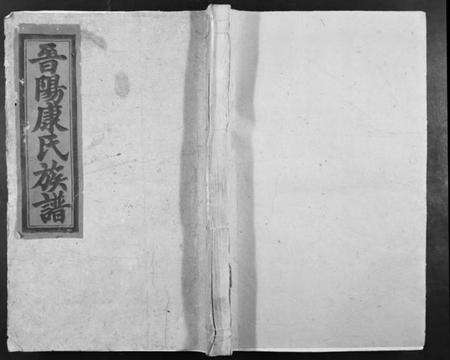 晉陽康氏族譜